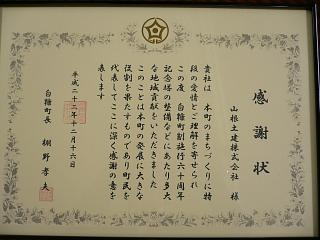 感謝状
山根土建株式会社 様
貴社は、本町のまちづくりに特
段の愛情とご理解を寄せられ
この度、白糠町制施行六十周年
記念塔の整備などにあたり多大
な地域貢献をいただきました
このことは本町の発展に大きな
役割を果たすものであり町民を
代表してここに深く感謝の意を
表します
平成二十二年十二月十六日
白糠町長 棚野孝夫